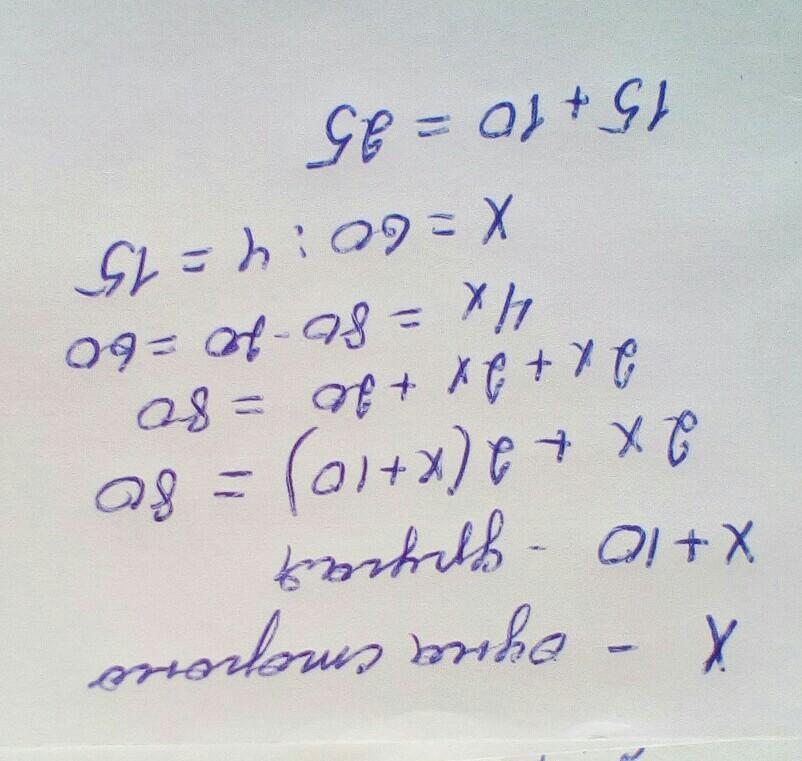 x - одна сторона
x + 10 - другая
2x + 2(x+10) = 80
2x + 2x + 20 = 80
4x = 80-20 = 60
x = 60 : 4 = 15
15 + 10 = 25